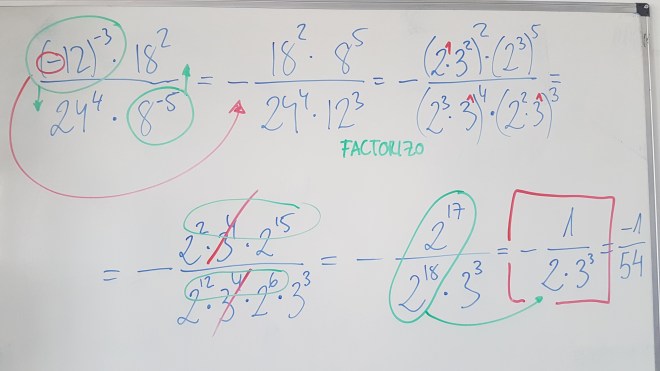 (-12)⁻³ · 18² / 24⁴ · 8⁻⁵ = - 18² · 8⁵ / 24⁴ · 12³ = - (2¹·3²)² · (2³)⁵ / (2³·3¹)⁴ · (2²·3¹)³ =
FACTORIZO
= - 2² · 3⁴ · 2¹⁵ / 2¹² · 3⁴ · 2⁶ · 3³ = - 2¹⁷ / 2¹⁸ · 3³ = - 1 / 2 · 3³ = -1 / 54